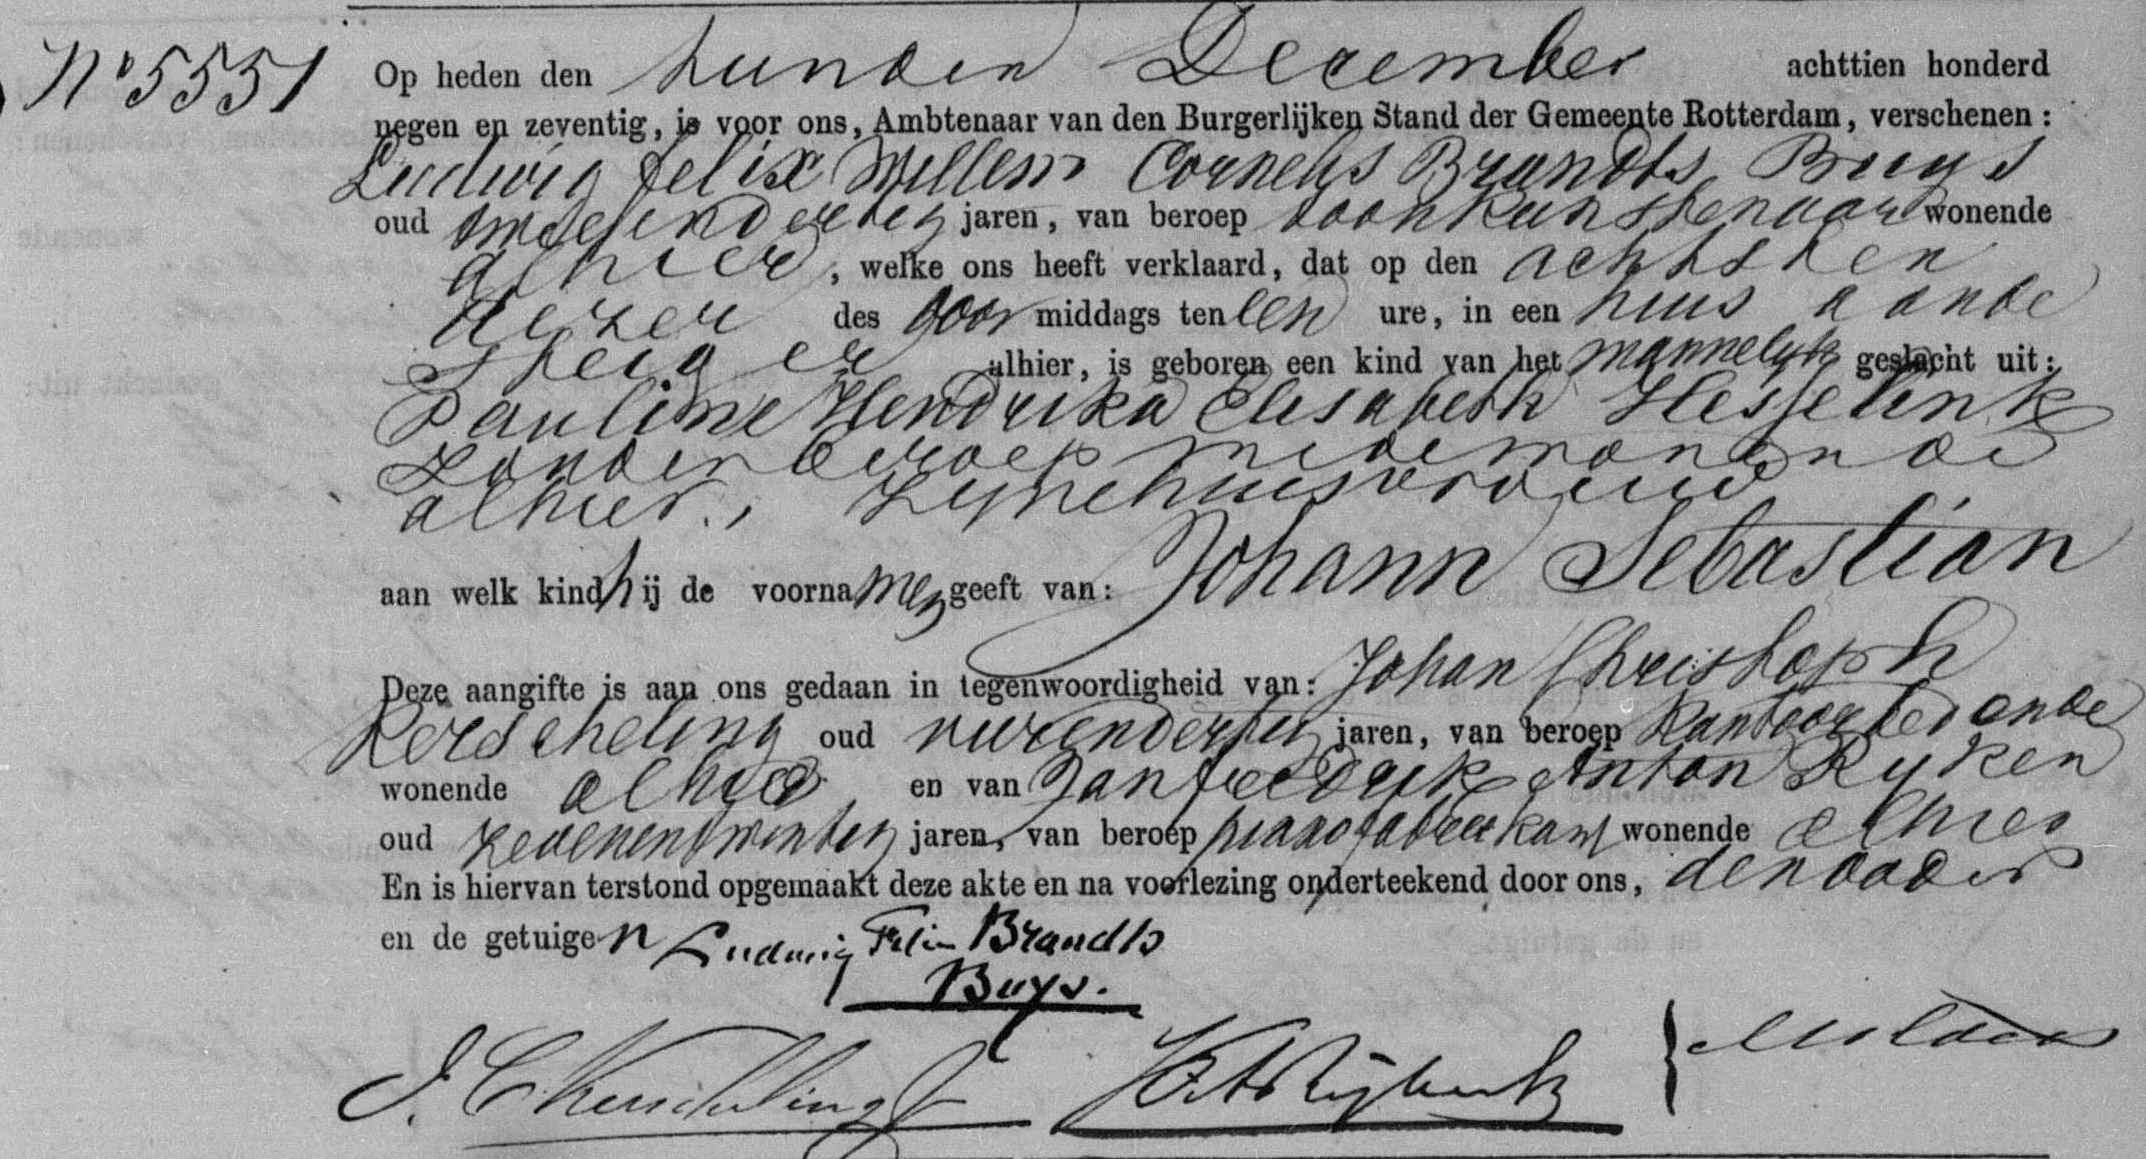 No 5551
Op heden den tienden December achttien honderd
negen en zeventig, is voor ons, Ambtenaar van den Burgerlijken Stand der Gemeente Rotterdam, verschenen:
Ludwig Felix Willem Cornelis Brandts Buys
oud jaren, van beroep toonkunstenaar wonende
alhier, welke ons heeft verklaard, dat op den achtsten
dezer des voor middags ten tien ure, in een huis aan de
Steiger alhier, is geboren een kind van het mannelijk geslacht uit:
Pauline Hendrika Elisabeth Hesselink
zonder beroep mede wonende
alhier, zijne huisvrouw
aan welk kind hij de voornamen geeft van: Johann Sebastian
Deze aangifte is aan ons gedaan in tegenwoordigheid van: Johan Christoph
Kerscheling oud vierendertig jaren, van beroep kantoorbediende
wonende alhier en van Jan Frederik Anton
oud zevenentwintig jaren, van beroep pianofabriekant wonende alhier
En is hiervan terstond opgemaakt deze akte en na voorlezing onderteekend door ons, den vader
en de getuigen Ludwig Felix Brandts
Buys.